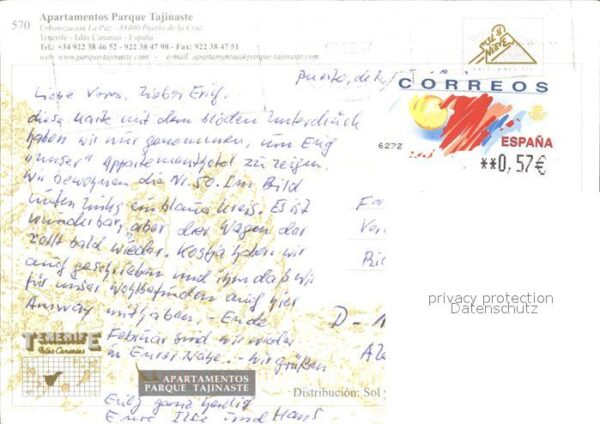 570
Apartamentos Parque Tajinaste
Urbanización La Paz - 38400 Puerto de la Cruz
Tenerife - Islas Canarias - España
Tel.: +34 922 38 46 52 - 922 38 47 98 - Fax: 922 38 47 51
web: www.parque-tajinaste.com - e-mail: apartamentos@parque-tajinaste.com
SOL Y NIEVE
CORREOS
6272
ESPAÑA
**0,57€
Liebe Vera, lieber Erif,
diese Karte mit dem blöden Unterdruck
haben wir nur genommen, um Euch
"unser" Appartementhotel zu zeigen.
Wir bewohnen die Nr. 50. Im Bild
unten links ein blauer Kreis. Es ist
wunderbar, aber der Wagen der
rollt bald wieder. haben wir
auch geschrieben und ihm daß wir
für unser Wohlbefinden auch hier
mitgaben. - Ende
Februar sind wir wieder
in Eurer Nähe. - Wir grüßen
Euch ganz herzlich
Eure Ilse und Hans
Fa
Ver
D -
privacy protection
Datenschutz
TENERIFE
Islas Canarias
APARTAMENTOS
PARQUE TAJINASTE
Distribución: Sol